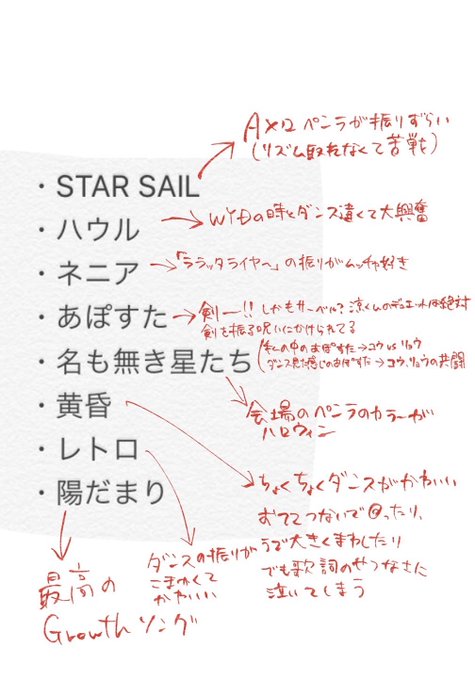 ・STAR SAIL
Aメロペンラが振りずらい
(リズム取れなくて苦戦)
・ハウル
WYDの時とダンス違くて大興奮
・ネニア
「ララッタライヤ〜」の振りがムッチャ好き
・あぽすた
剣ー!! しかもサーベル? 涼くんのデュエットは絶対
剣を振る呪いにかけられてる
(私の中のあぽすた→コウvsリョウ
ダンス見た感じのあぽすた→コウ、リョウの共闘
・名も無き星たち
会場のペンラのカラーが
ハロウィン
・黄昏
ちょくちょくダンスがかわいい
おててつないで@ったり、
うで大きくまわしたり
でも歌詞のせつなさに
泣いてしまう
・レトロ
ダンスの振りが
こまかくて
かわいい
・陽だまり
最高の
Growthソング